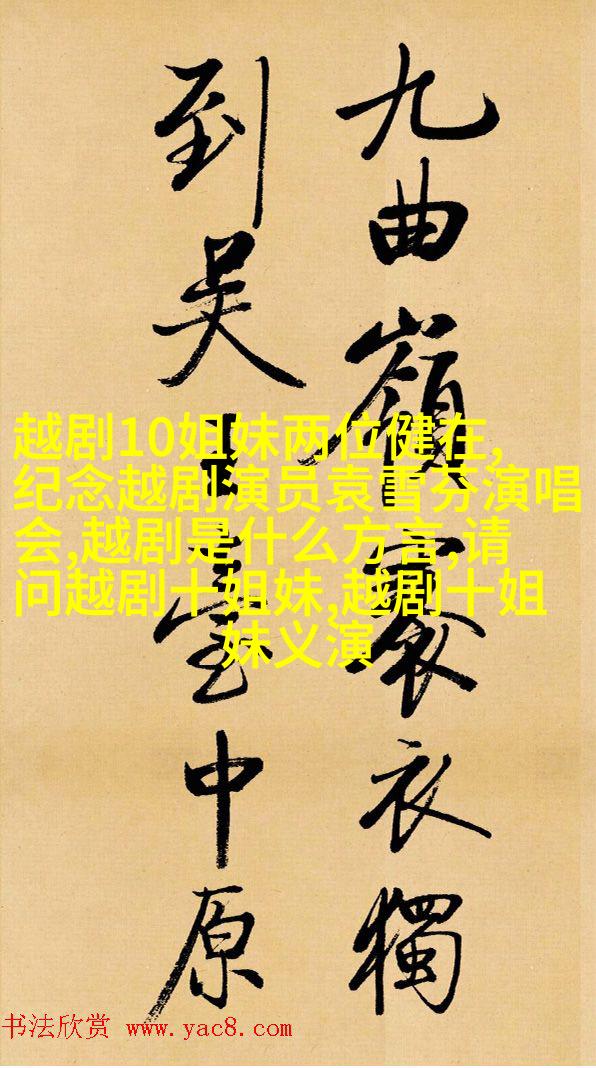 九曲嶺褰衣獨
到吴臺中原
越剧10姐妹两位健在,
纪念越剧演员袁雪芬演唱
会,越剧是什么方言,请
问越剧十姐妹,越剧十姐
妹义演
书法欣赏 www.yac8.com